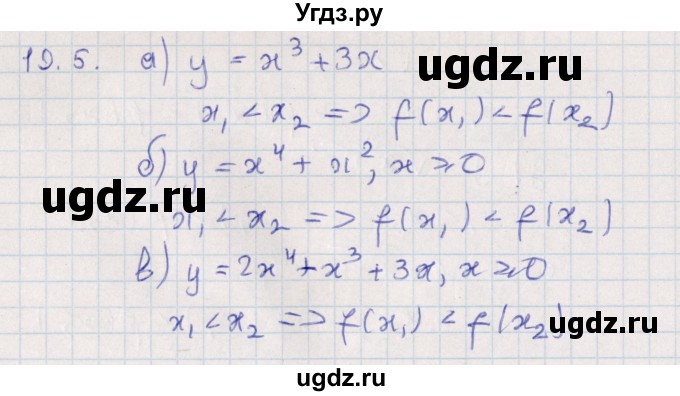 Угдз.ру
19.5. а) y = x³ + 3x
ugdz.ru
x₁ < x₂ => f(x₁) < f(x₂)
б) y = x⁴ + x², x ⩾ 0
ugdz.ru
x₁ < x₂ => f(x₁) < f(x₂)
в) y = 2x⁴ + x³ + 3x, x ⩾ 0
x₁ < x₂ => f(x₁) < f(x₂)
ugdz.ru
ugdz.ru